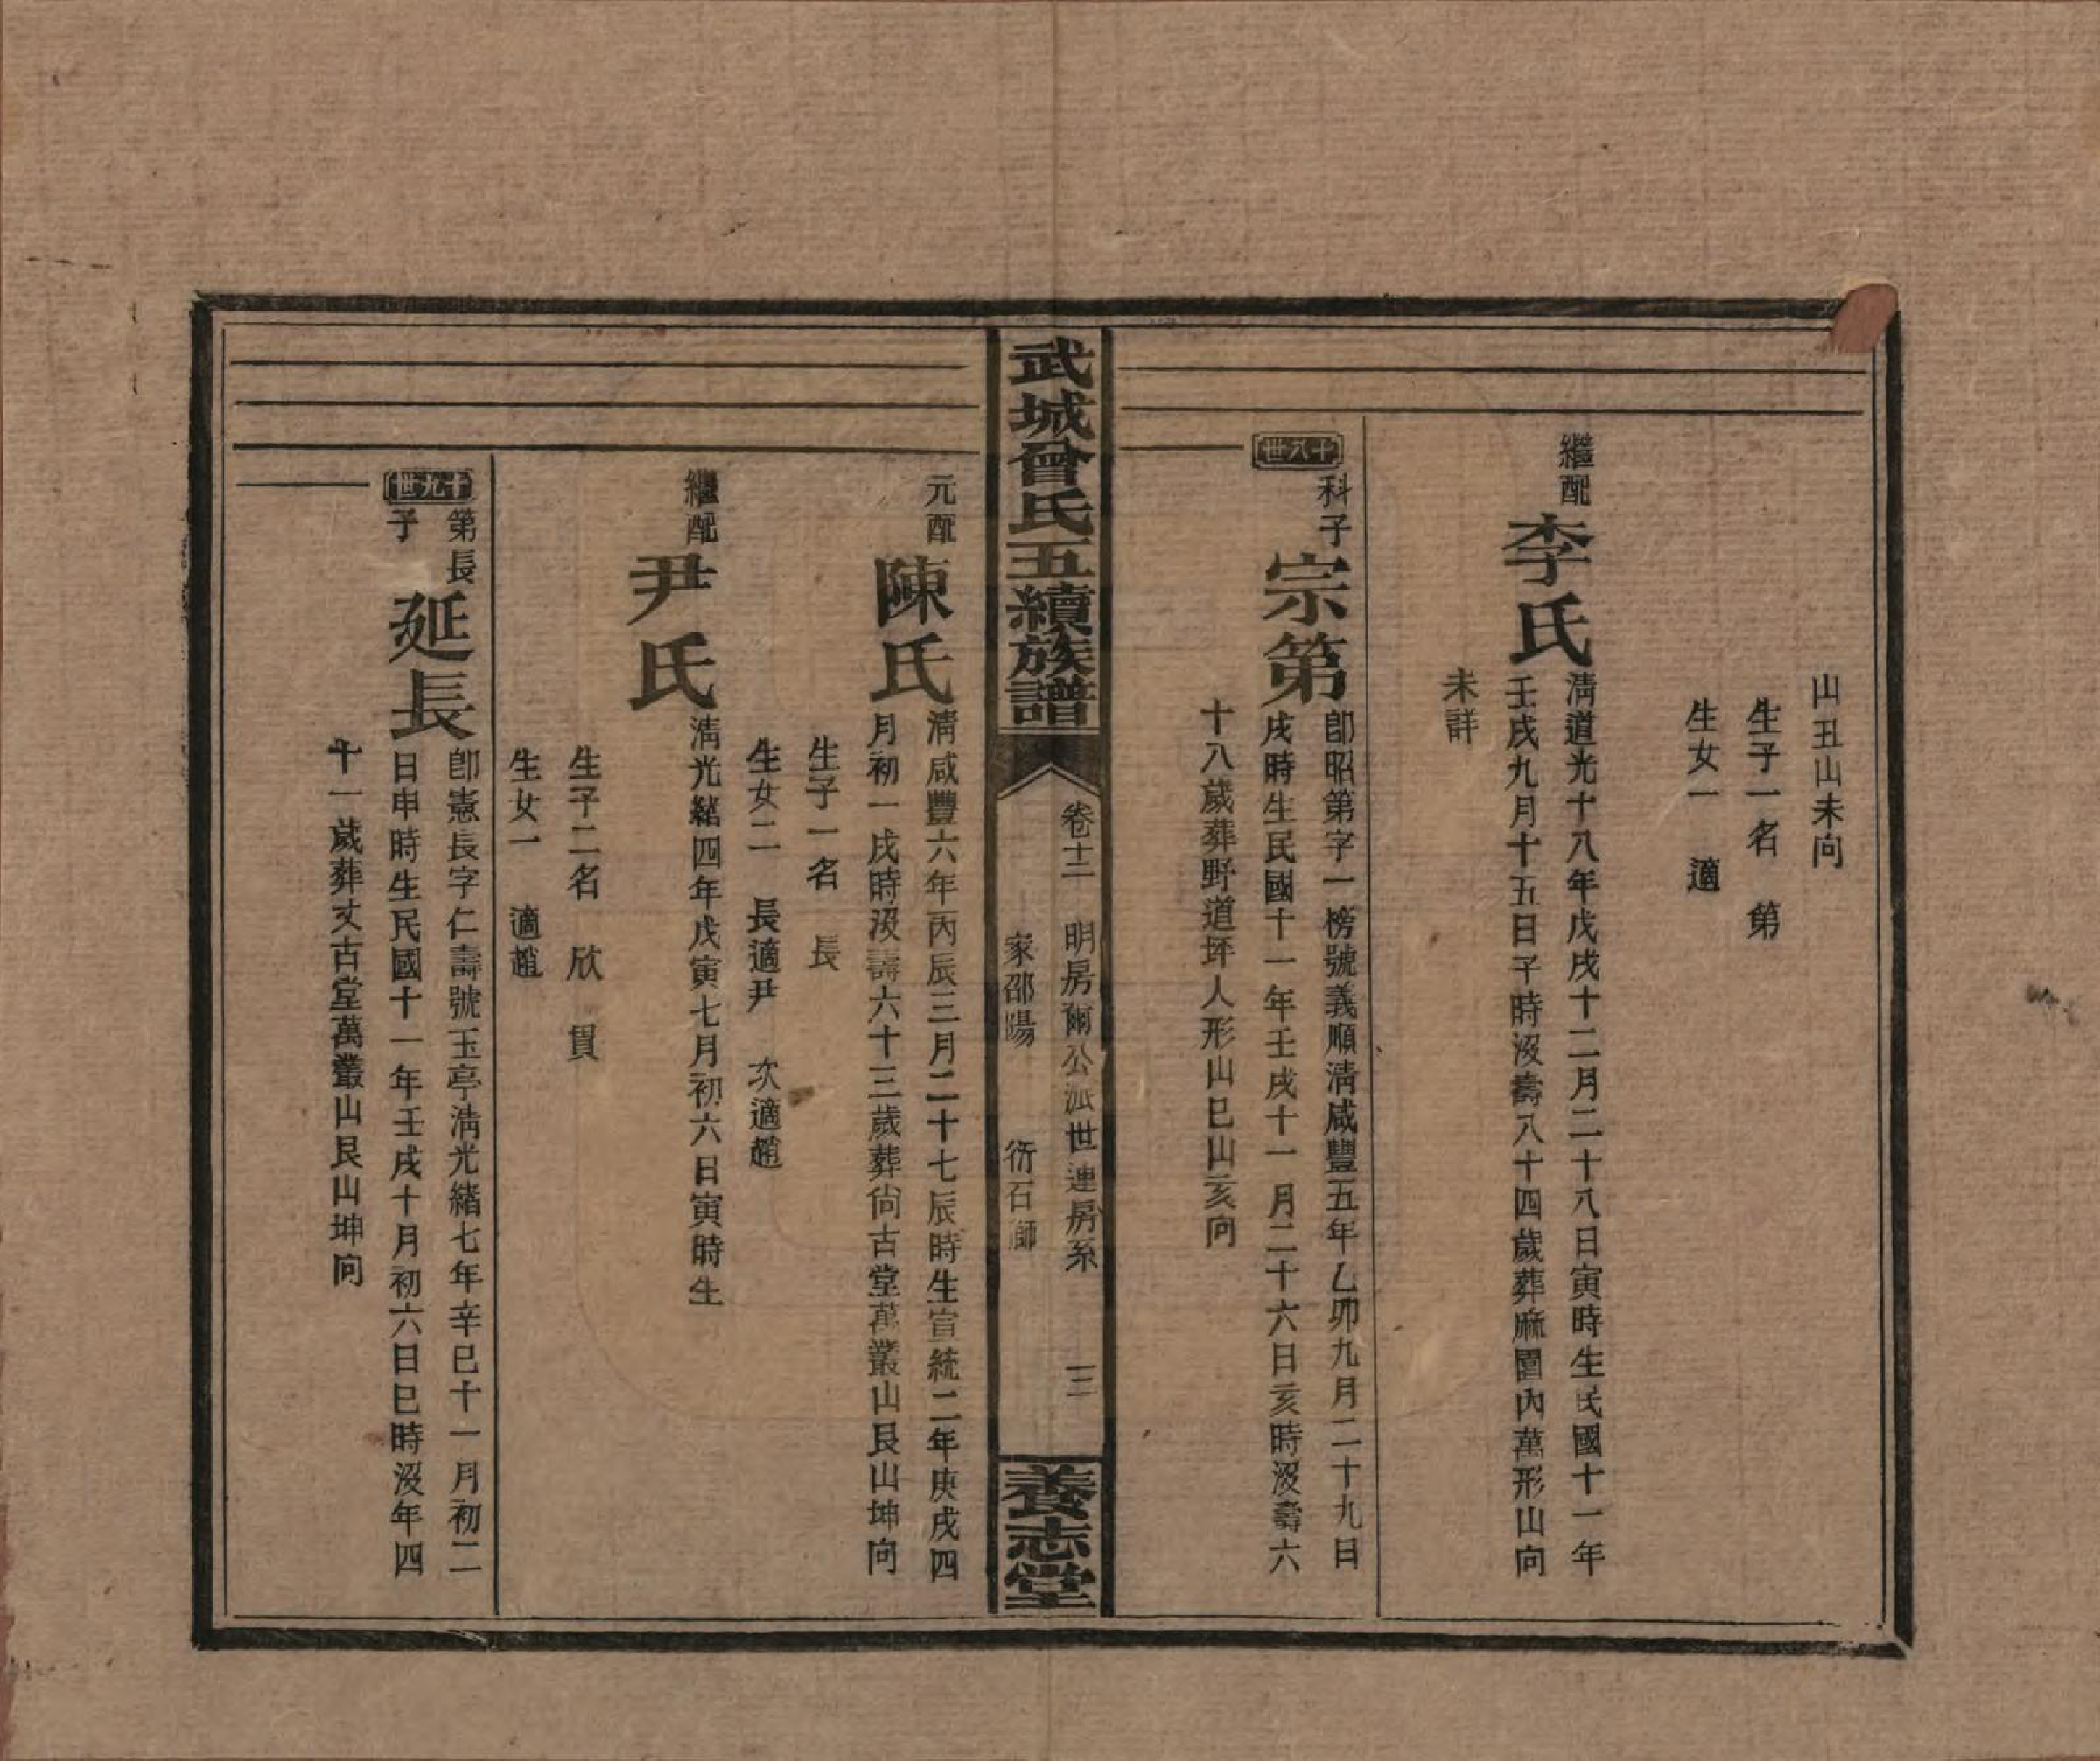 山丑山未向
生子一名 第
生女一 適
繼配
李氏
清道光十八年戊戌十二月二十八日寅時生民國十一年
壬戌九月十五日子時沒壽八十四歲葬麻園內萬形山向
未詳
十八世
科子
宗第
卽昭第字一榜號義順清咸豐五年乙卯九月二十九日
戌時生民國十一年壬戌十一月二十六日亥時沒壽六
十八歲葬野道坪人形山巳山亥向
武城曾氏五續族譜
卷十二 明房爾公派世連房系 三
家邵陽 衍石
養志堂
元配
陳氏
清咸豐六年丙辰三月二十七辰時生宣統二年庚戌四
月初一戌時沒壽六十三歲葬尙古堂萬叢山艮山坤向
生子一名 長
生女二 長適尹 次適趙
繼配
尹氏
清光緒四年戊寅七月初六日寅時生
生子二名 欣 貫
生女一 適趙
十九世
第長
子
延長
卽憲長字仁壽號玉亭清光緒七年辛巳十一月初二
日申時生民國十一年壬戌十月初六日巳時沒年四
十一歲葬丈古堂萬叢山艮山坤向